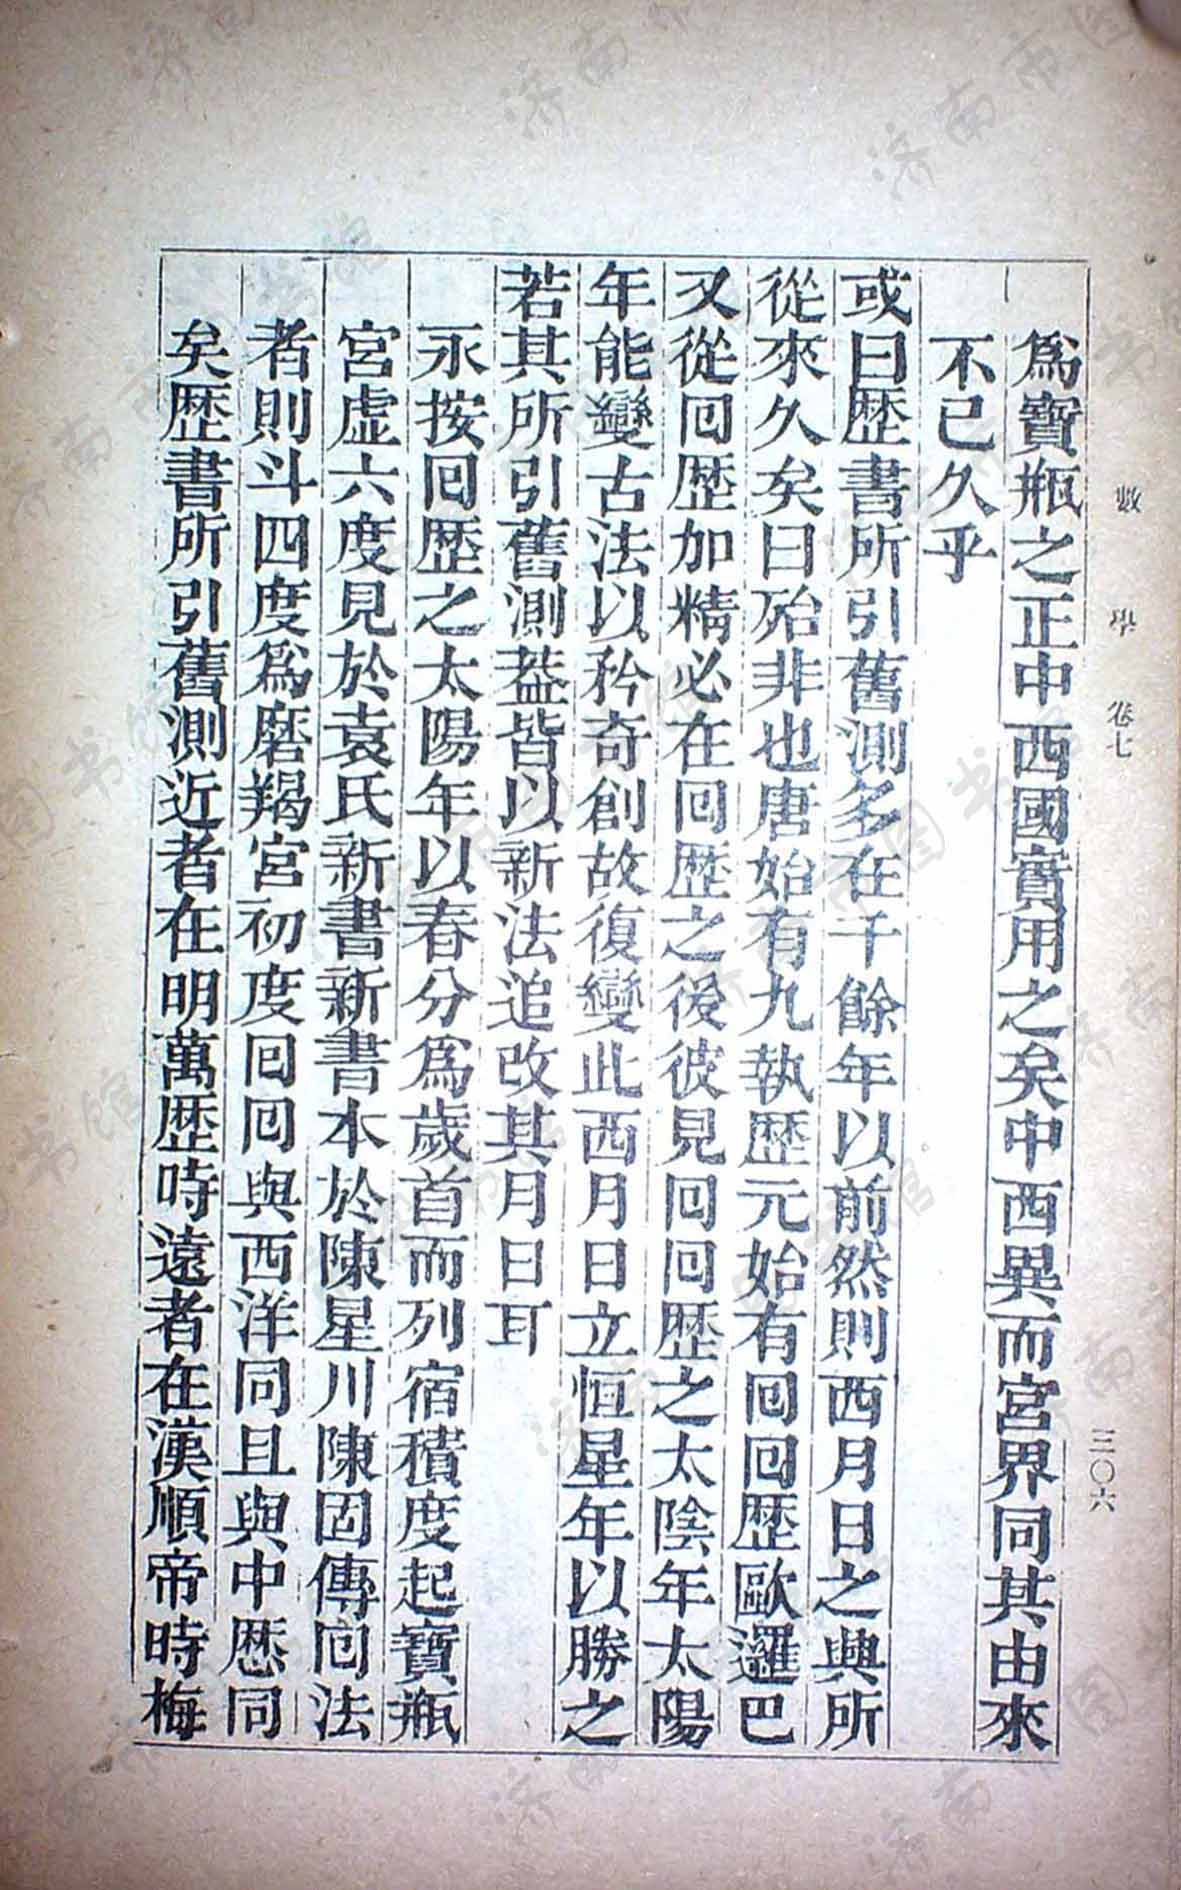 數學 卷七
三〇六
爲寶瓶之正中西國實用之矣中西異而宮界同其由來
不已久乎
或曰歷書所引舊測多在千餘年以前然則西月日之興所
從來久矣曰殆非也唐始有九執歷元始有回回歷歐邏巴
又從回歷加精必在回歷之後彼見回回歷之太陰年太陽
年能變古法以矜奇創故復變此西月日立恒星年以勝之
若其所引舊測葢皆以新法追改其月日耳
永按回歷之太陽年以春分爲歲首而列宿積度起寶瓶
宮虛六度見於袁氏新書新書本於陳星川陳固傳回法
者則斗四度爲磨羯宮初度回回與西洋同且與中歷同
矣歷書所引舊測近者在明萬歷時遠者在漢順帝時梅